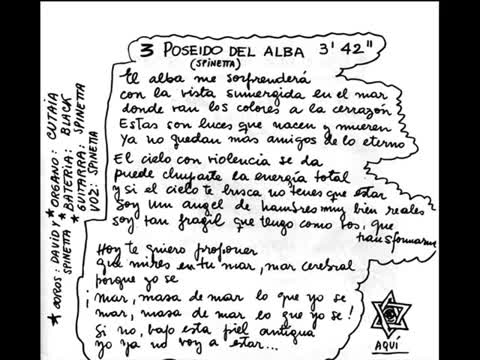 3 POSEIDO DEL ALBA 3' 42"
(SPINETTA)
El alba me sorprenderá
con la vista sumergida en el mar
donde van los colores a la cerrazón
Estas son luces que nacen y mueren
ya no quedan más amigos de lo eterno
El cielo con violencia se da
puede chuparte la energía total
y si el cielo te busca no tenes que estar
soy un angel de hambres muy bien reales
soy tan fragil que tengo como vos, que
transformarme
Hoy te quiero proponer
que mires en tu mar, mar cerebral
porque yo se
mar, masa de mar lo que yo se
¡mar, masa de mar lo que yo se!
Si no, bajo esta piel antigua
yo ya no voy a estar...
★ COROS: DAVID Y SPINETTA
★ ORGANO: CUTAIA
★ BATERIA: BLACK
★ GUITARRA: SPINETTA
VOZ: SPINETTA
AQUÍ